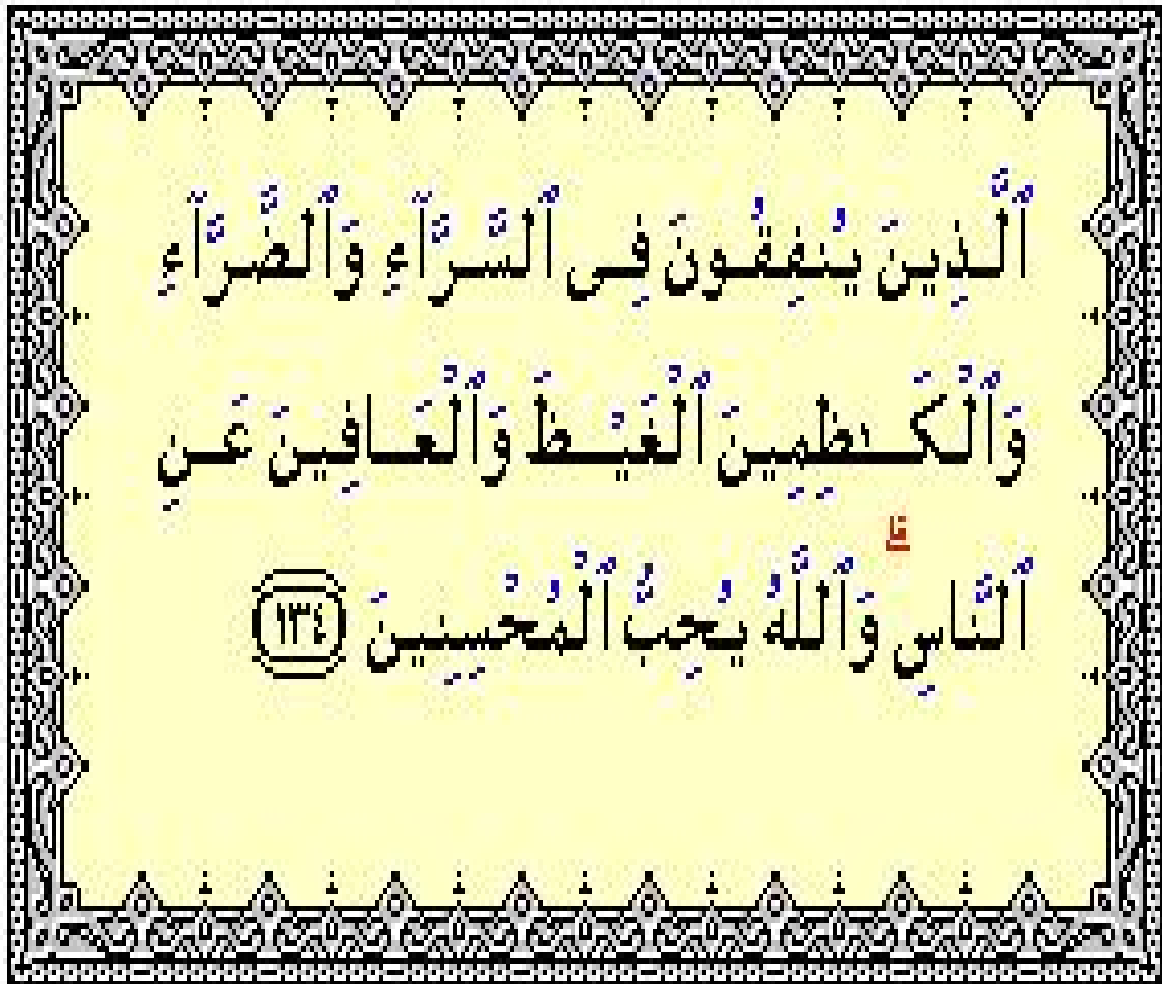 ٱلَّذِينَ يُنفِقُونَ فِى ٱلسَّرَّآءِ وَٱلضَّرَّآءِ
وَٱلْكَـٰظِمِينَ ٱلْغَيْظَ وَٱلْعَافِينَ عَنِ
ٱلنَّاسِ ۗ وَٱللَّهُ يُحِبُّ ٱلْمُحْسِنِينَ ١٣٤